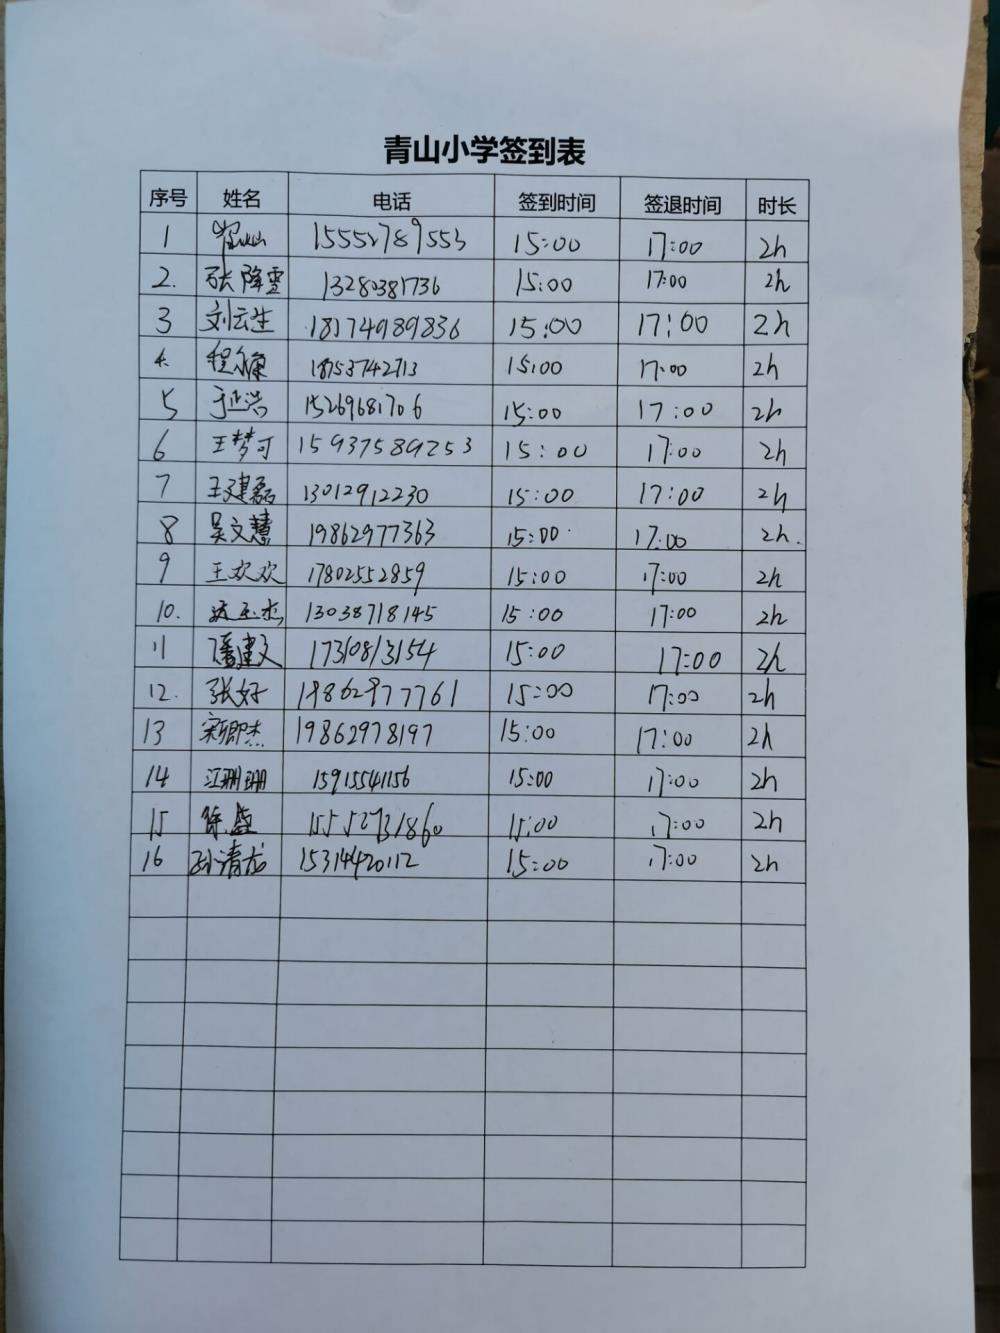 青山小学签到表
序号 姓名 电话 签到时间 签退时间 时长
1 15552789553 15:00 17:00 2h
2. 张降雪 13280381736 15:00 17:00 2h
3 刘云生 18174989836 15:00 17:00 2h
4. 程 18753742713 15:00 17:00 2h
5 于正浩 15269681706 15:00 17:00 2h
6 王梦可 15937589253 15:00 17:00 2h
7 王建磊 13012912230 15:00 17:00 2h
8 吴文慧 19862977363 15:00 17:00 2h.
9 王欢欢 17802552859 15:00 17:00 2h
10. 13038718145 15:00 17:00 2h
11 潘建文 17310813154 15:00 17:00 2h
12. 张好 19862977761 15:00 17:00 2h
13 宋卿杰 19862978197 15:00 17:00 2h
14 江珊珊 15915541156 15:00 17:00 2h
15 徐盛 15552731860 15:00 17:00 2h
16 孙清龙 15314420112 15:00 17:00 2h